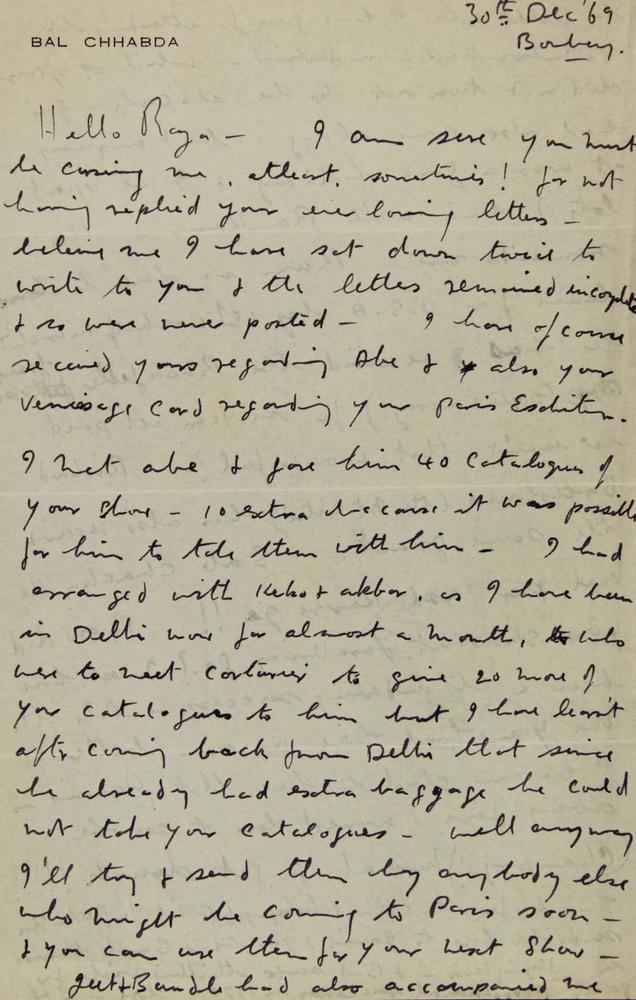 30th Dec '69
BAL CHHABDA
Bombay.
Hello Raza — I am sure you must
be cursing me, atleast, sometimes! for not
having replied your ever loving letters —
believe me I have sat down twice to
write to you & the letters remained incomplete
& so were never posted — I have of course
received yours regarding Abe & also your
Vernissage Card regarding your Paris Exhibition.
I met abe & gave him 40 Catalogues of
your Show — 10 extra because it was possible
for him to take them with him — I had
arranged with Keko & akbar, as I have been
in Delhi now for almost a month, who
were to meet to give 20 more of
your catalogues to him but I have learnt
after coming back from Delhi that since
he already had extra baggage he could
not take your Catalogues — well anyway
I'll try & send them by anybody else
who might be coming to Paris soon —
& you can use them for your next Show —
Jeet & had also accompanied me